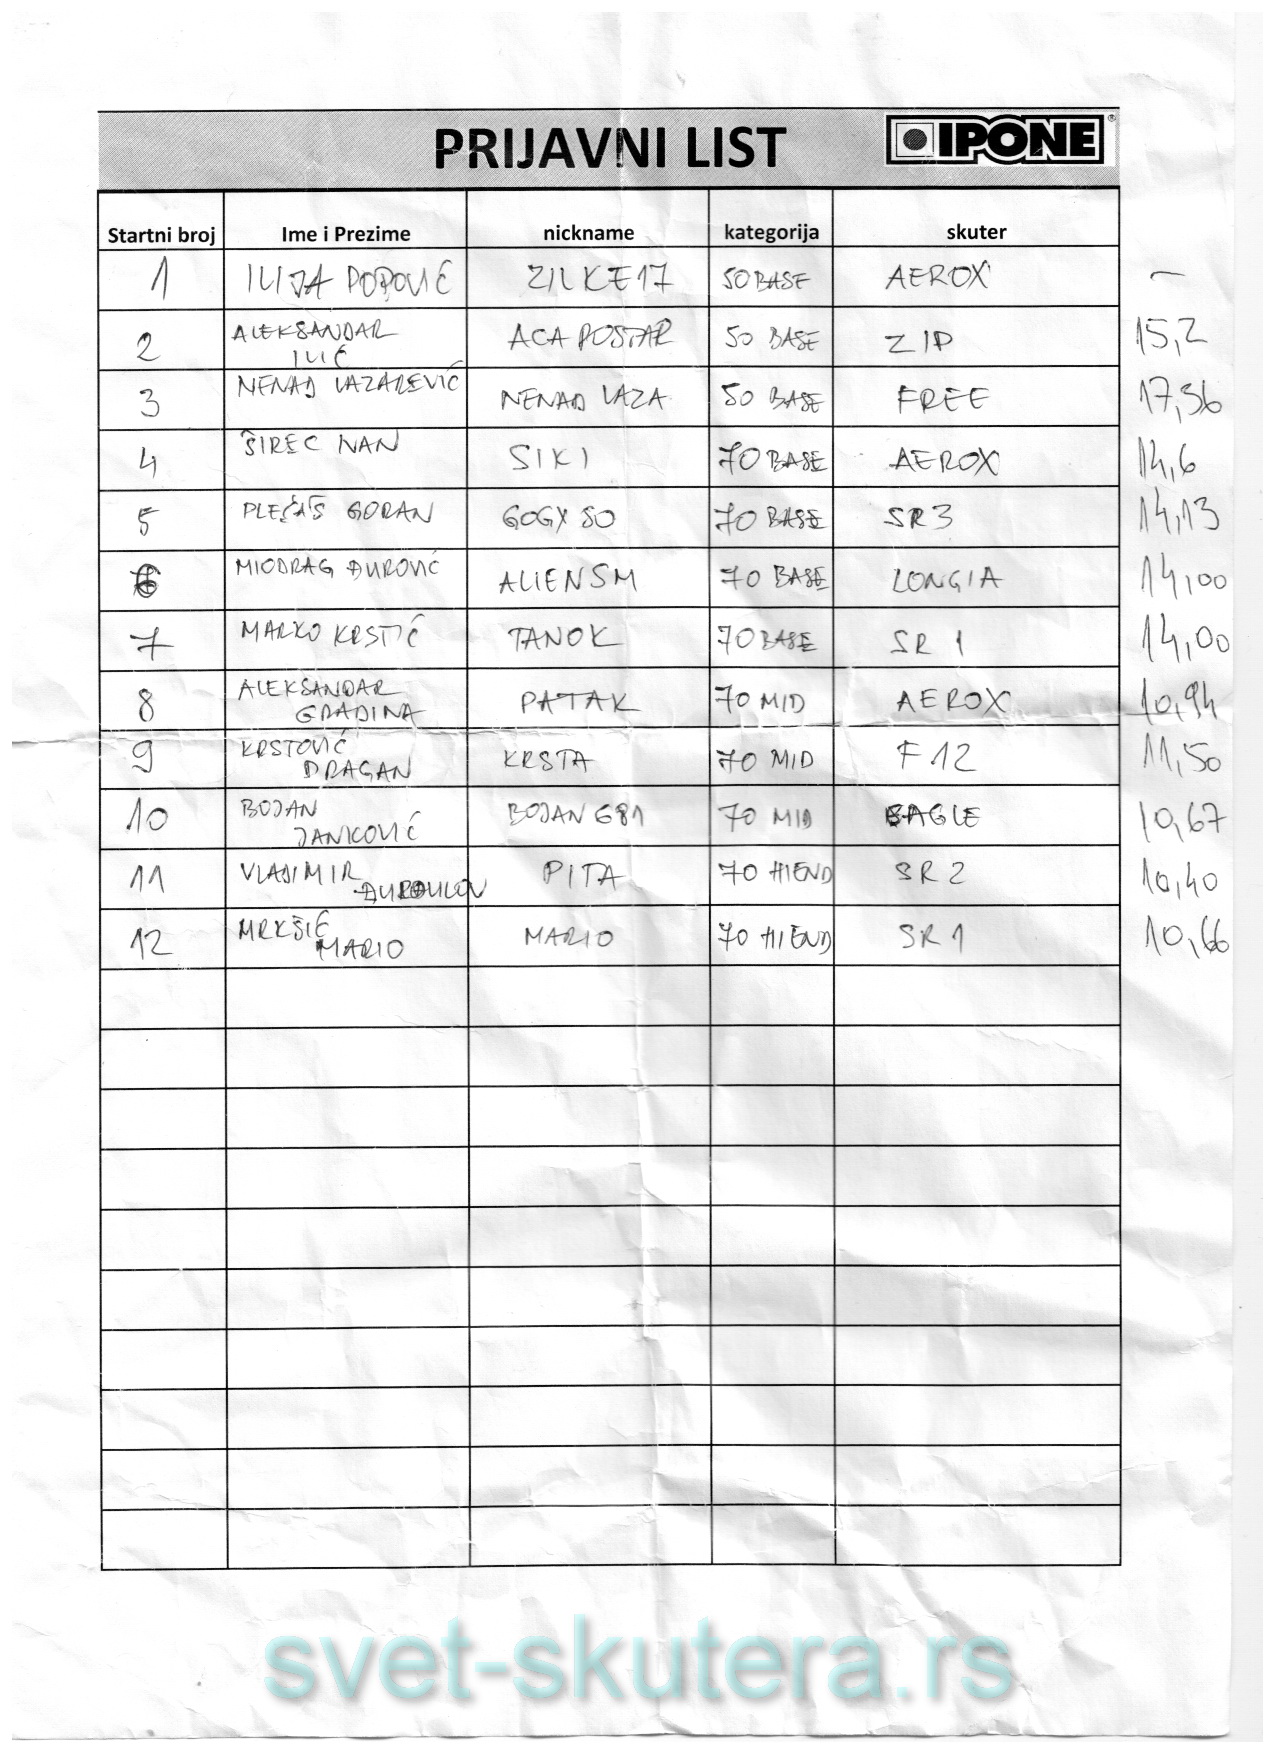 PRIJAVNI LIST IPONE®
Startni broj Ime i Prezime nickname kategorija skuter
1 ILIJA POPOVIĆ ZILKE17 50 BASE AEROX –
2 ALEKSANDAR ILIĆ ACA POSTAR 50 BASE ZIP 15,2
3 NENAD LAZAREVIĆ NENAD LAZA 50 BASE FREE 17,36
4 ŠIREC IVAN SIKI 70 BASE AEROX 14,6
5 PLEĆAŠ GORAN GOGY 80 70 BASE SR3 14,13
6 MIODRAG ĐUROVIĆ ALIENSM 70 BASE LONGIA 14,00
7 MARKO KRSTIĆ TANOK 70 BASE SR1 14,00
8 ALEKSANDAR GRADINA PATAK 70 MID AEROX 10,94
9 KRSTOVIĆ DRAGAN KRSTA 70 MID F12 11,50
10 BOJAN JANKOVIĆ BOJAN681 70 MID EAGLE 10,67
11 VLADIMIR PITA 70 HIEND SR2 10,40
12 MRKŠIĆ MARIO MARIO 70 HIEND SR1 10,66
svet-skutera.rs